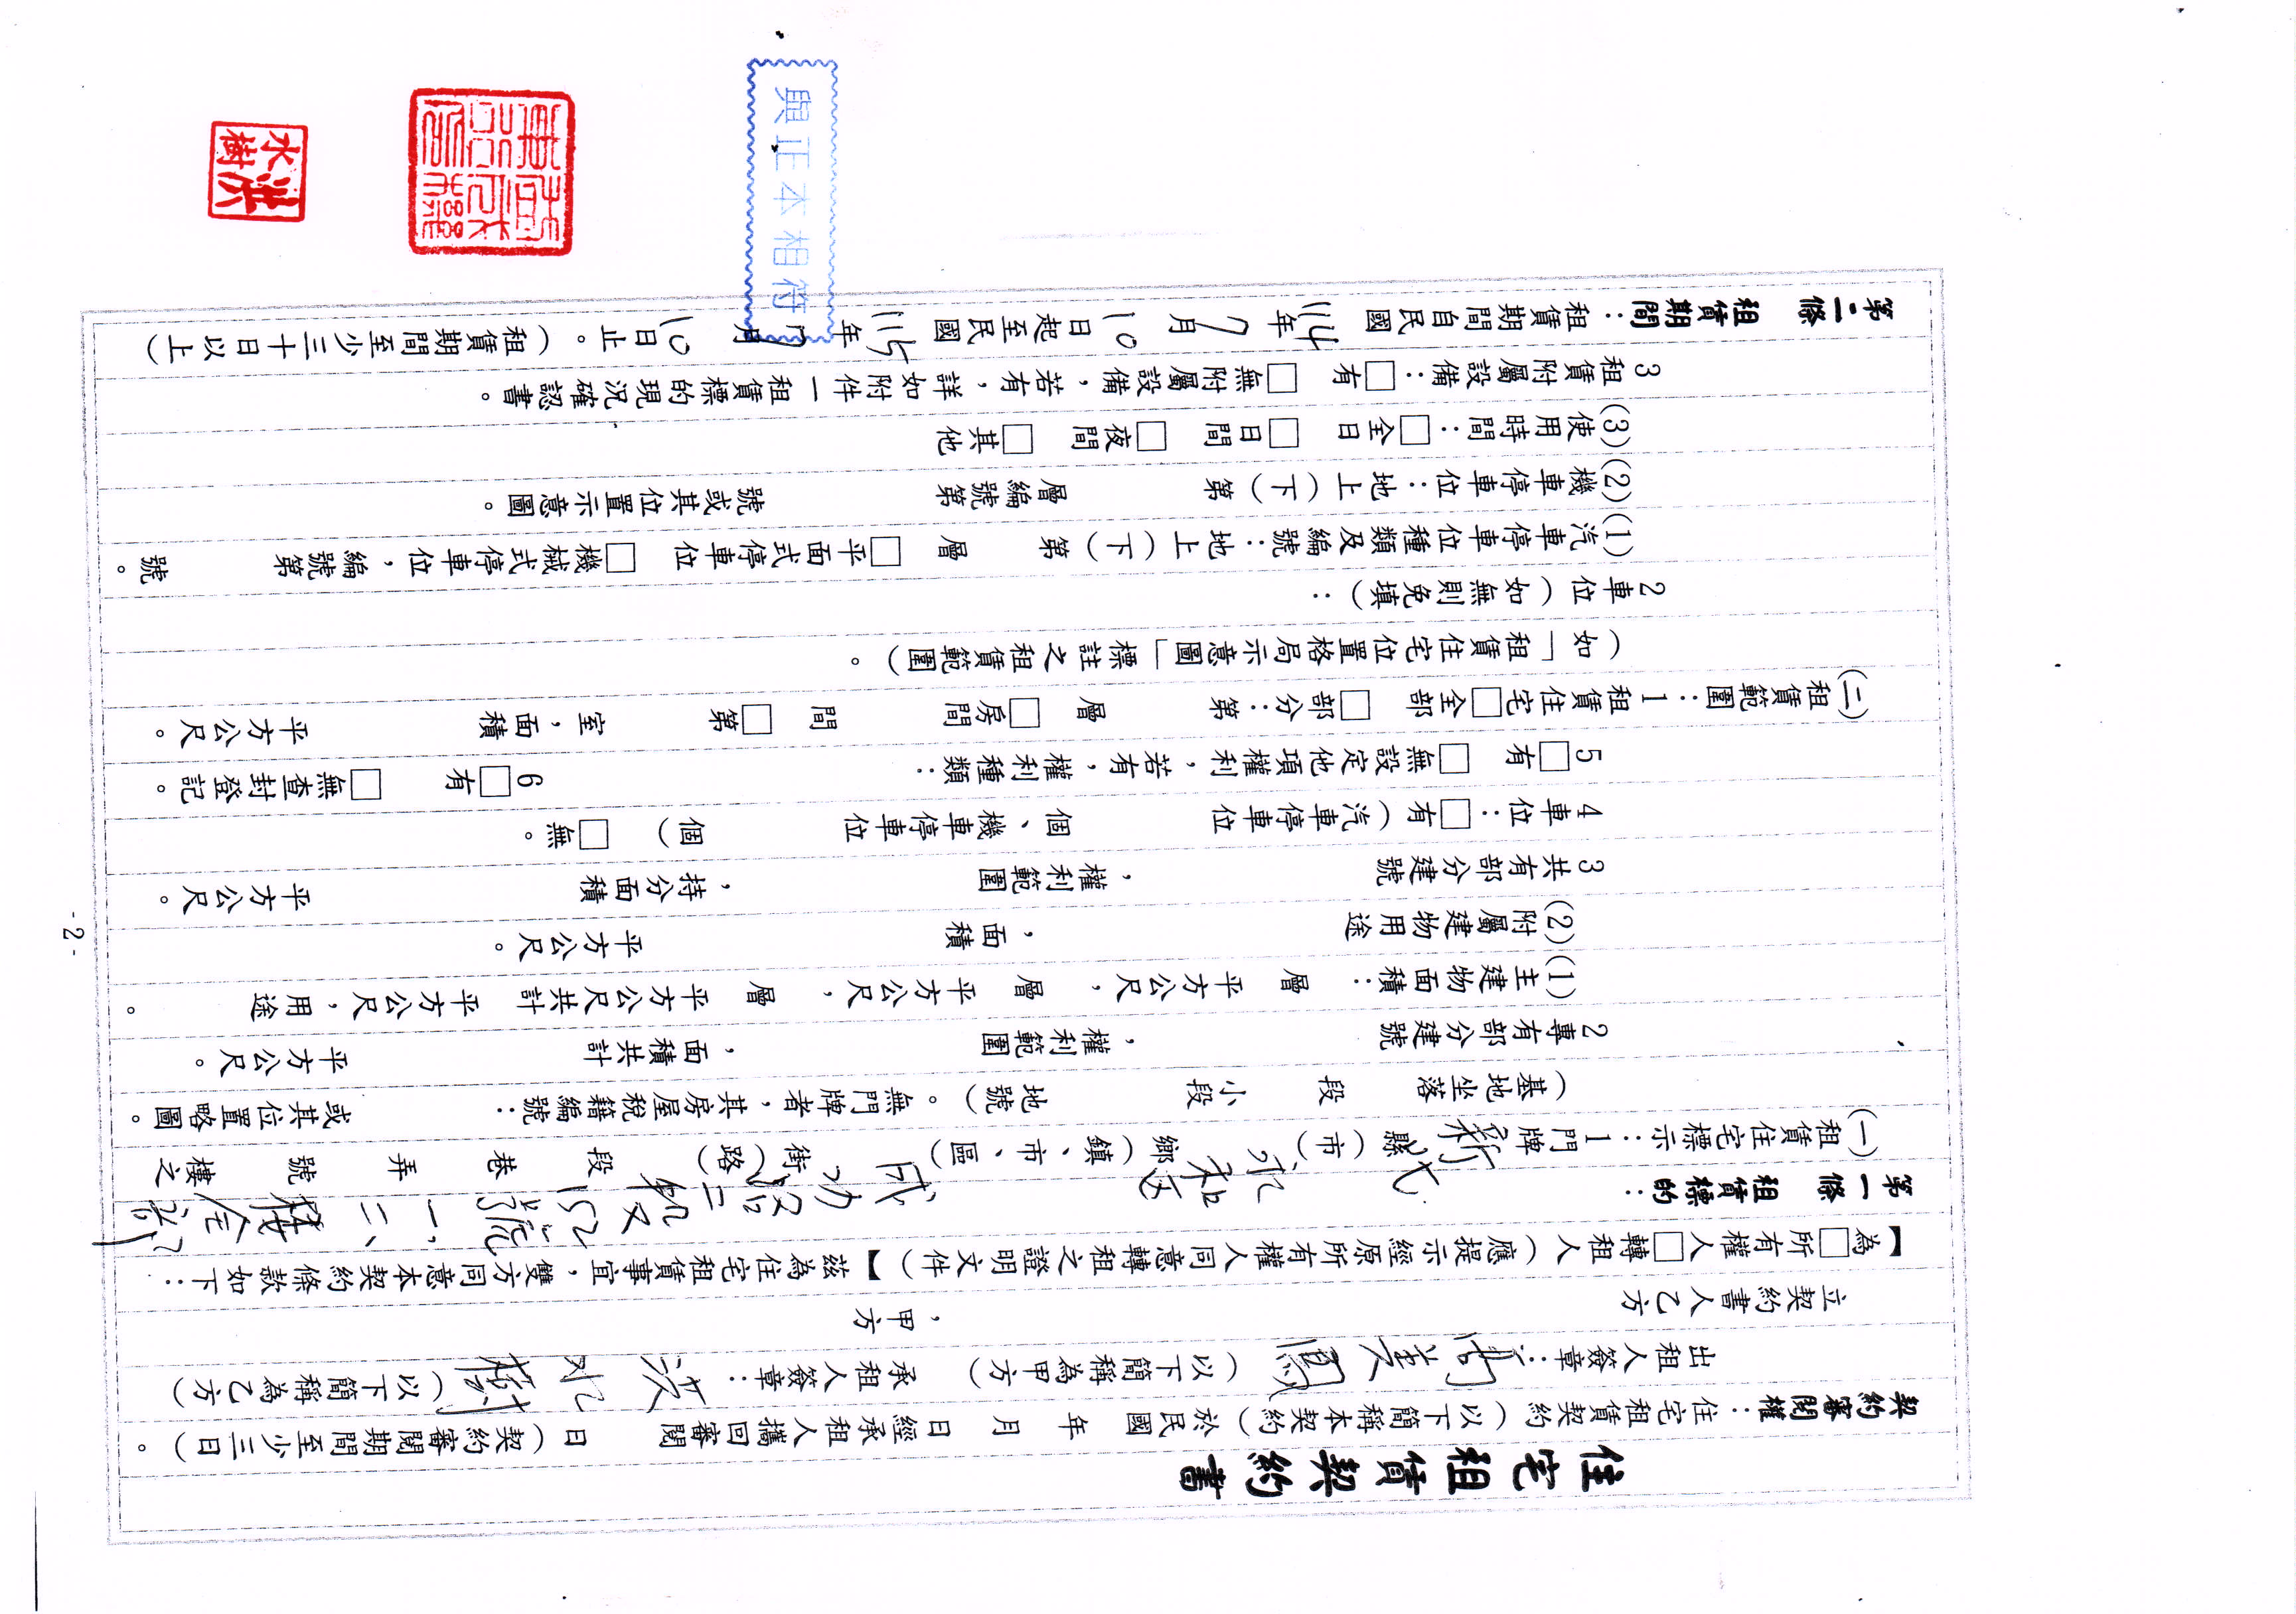 住宅租賃契約書
契約審閱權：住宅租賃契約（以下簡稱本契約）於民國　年　月　日經承租人攜回審閱　日（契約審閱期間至少三日）。
出租人簽章：　（以下簡稱為甲方）　承租人簽章：洪水樹（以下簡稱為乙方）
立契約書人乙方　，甲方
【為□所有權人□轉租人（應提示經原所有權人同意轉租之證明文件）】茲為住宅租賃事宜，雙方同意本契約條款如下：
第一條　租賃標的：
(一)租賃住宅標示：1門牌新北縣（市）永和鄉（鎮、市、區）成功街（路）二段　巷　弄　號　樓之
一、二樓全部
（基地坐落　段　小段　地號）。無門牌者，其房屋稅籍編號：　或其位置略圖。
2專有部分建號　，權利範圍　，面積共計　平方公尺。
(1)主建物面積：　層　平方公尺，　層　平方公尺，　層　平方公尺共計　平方公尺，用途　。
(2)附屬建物用途　，面積　平方公尺。
3共有部分建號　，權利範圍　，持分面積　平方公尺。
4車位：□有（汽車停車位　個、機車停車位　個）　□無。
5□有　□無設定他項權利，若有，權利種類：　6□有　□無查封登記。
(二)租賃範圍：1租賃住宅□全部　□部分：第　層　□房間　間　□第　室，面積　平方公尺。
（如「租賃住宅位置格局示意圖」標註之租賃範圍）。
2車位（如無則免填）：
(1)汽車停車位種類及編號：地上（下）第　層　□平面式停車位　□機械式停車位，編號第　號。
(2)機車停車位：地上（下）第　層編號第　號或其位置示意圖。
(3)使用時間：□全日　□日間　□夜間　□其他
3租賃附屬設備：□有　□無附屬設備，若有，詳如附件一租賃標的現況確認書。
第二條　租賃期間：租賃期間自民國114年7月10日起至民國115年7月10日止。（租賃期間至少三十日以上）
與正本相符
洪水樹
-2-